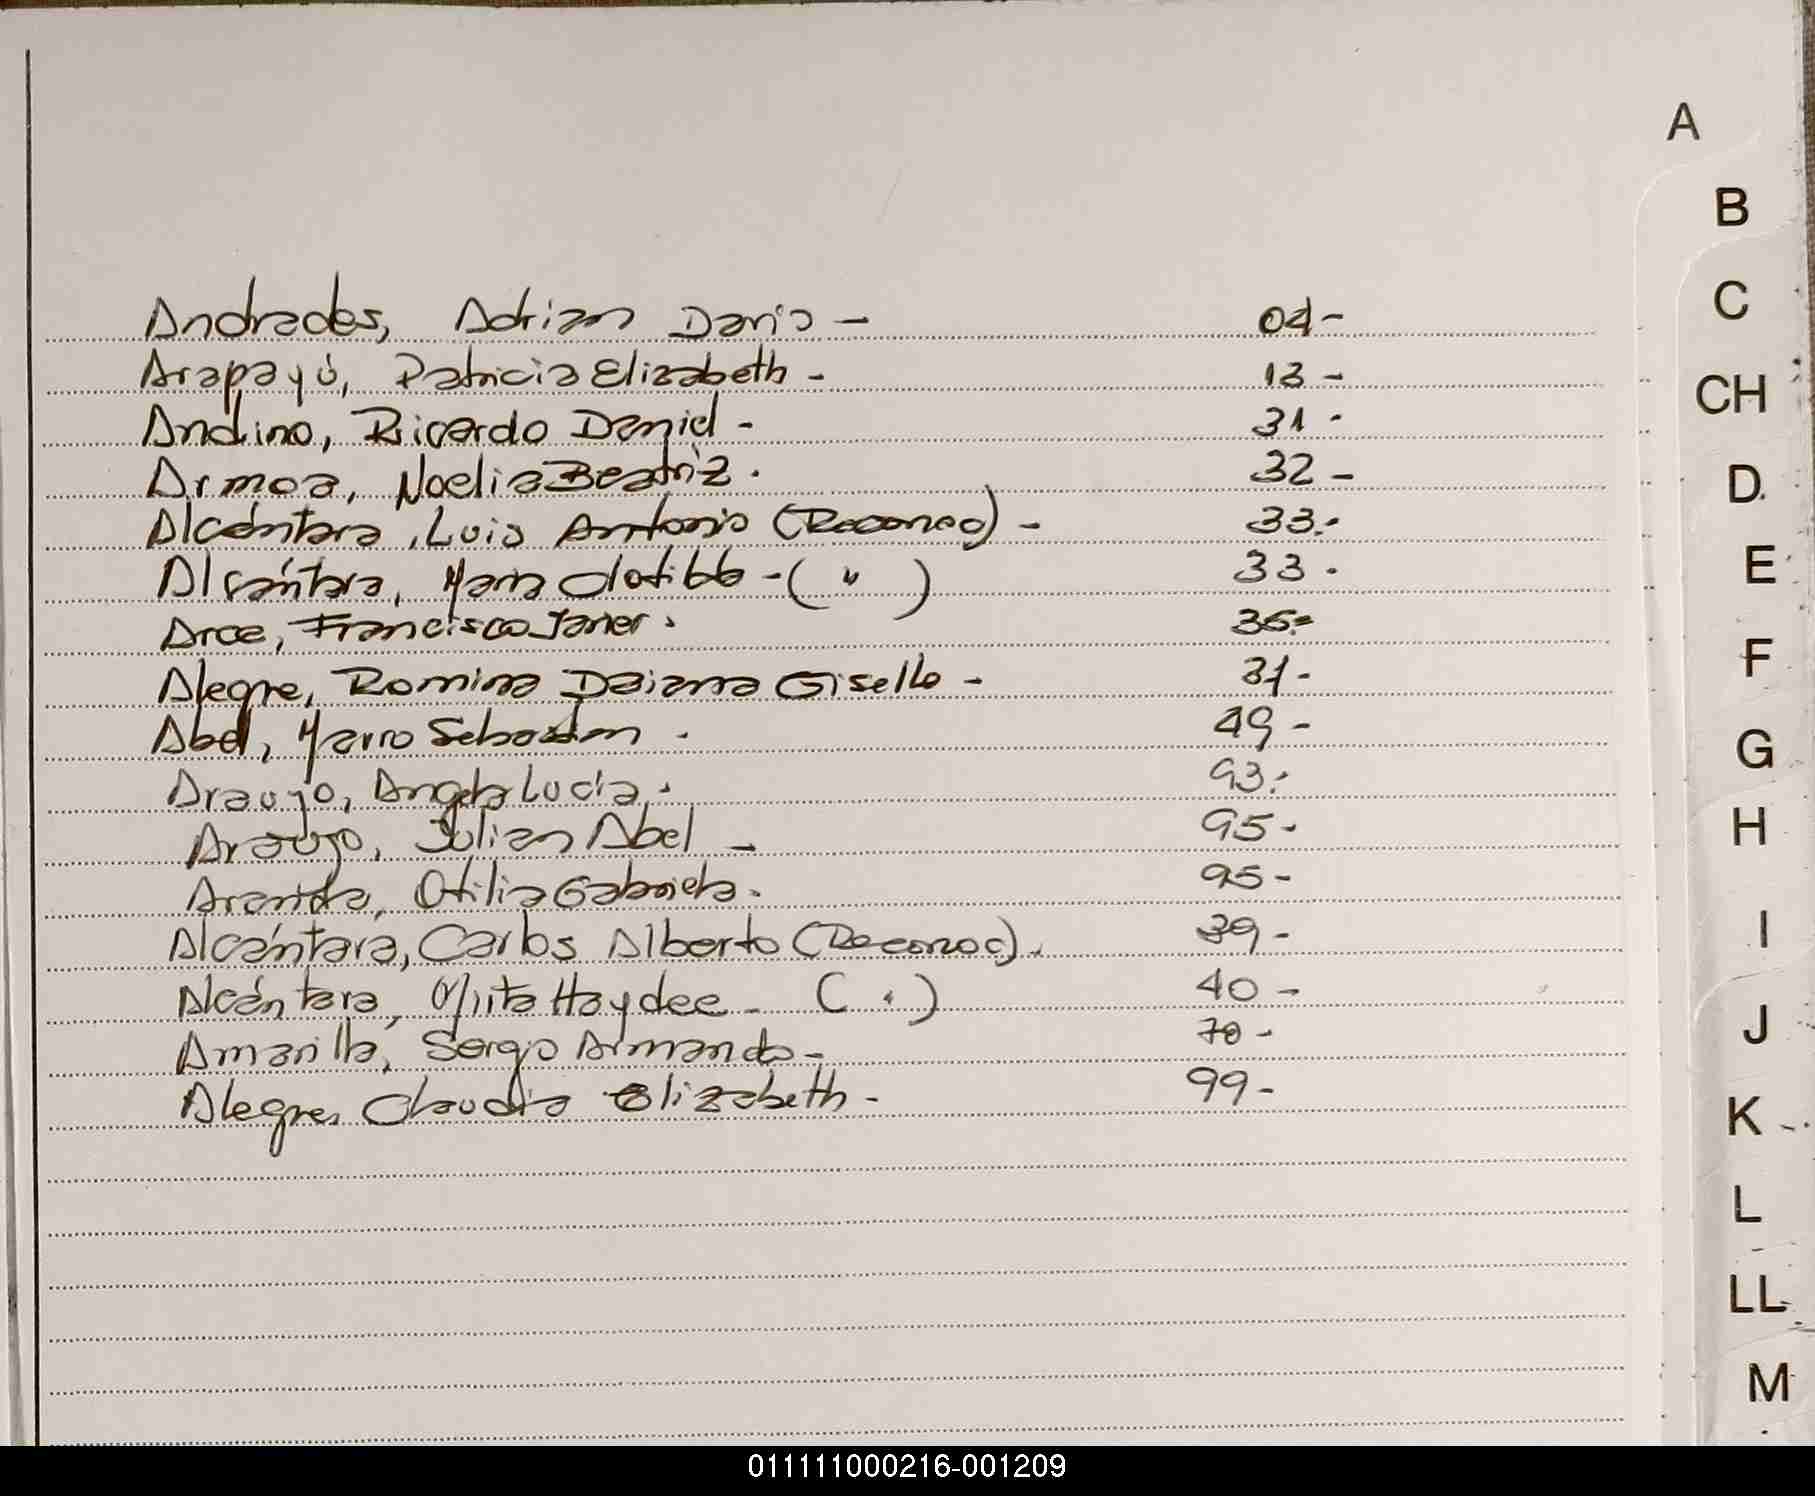 A
B
C
CH
D
E
F
G
H
I
J
K
L
LL
M
Andrades, Adrian Dario - 04-
Arapayú, Patricia Elizabeth - 13 -
Andino, Ricardo Daniel - 31 -
Armoa, Noelia Beatriz. 32 -
Alcántara, Luis Antonio (Reconoc) - 33.-
Alcántara, Maria Clotilde - ( " ) 33 -
Arce, Francisco Javier. 36.-
Alegre, Romina Daiana Gisella - 31 -
Abel, Mauro Sebastian . 49 -
Araujo, Angela Lucia. 93.-
Araujo, Julian Abel - 95 -
Aranda, Otilia Gabriela. 95 -
Alcántara, Carlos Alberto (Reconoc). 39 -
Alcántara, Mirta Haydee - ( " ) 40 -
Amarilla, Sergio Armando - 70 -
Alegre, Claudia Elizabeth - 99 -
011111000216-001209